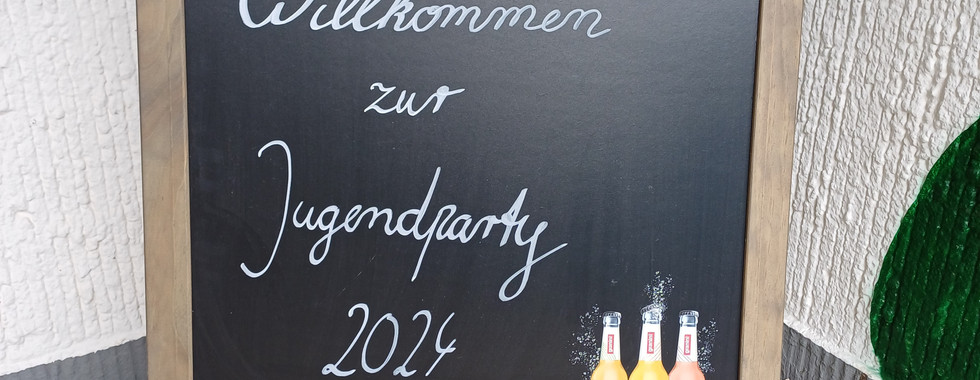 Willkommen
zur
Jugendparty
2024